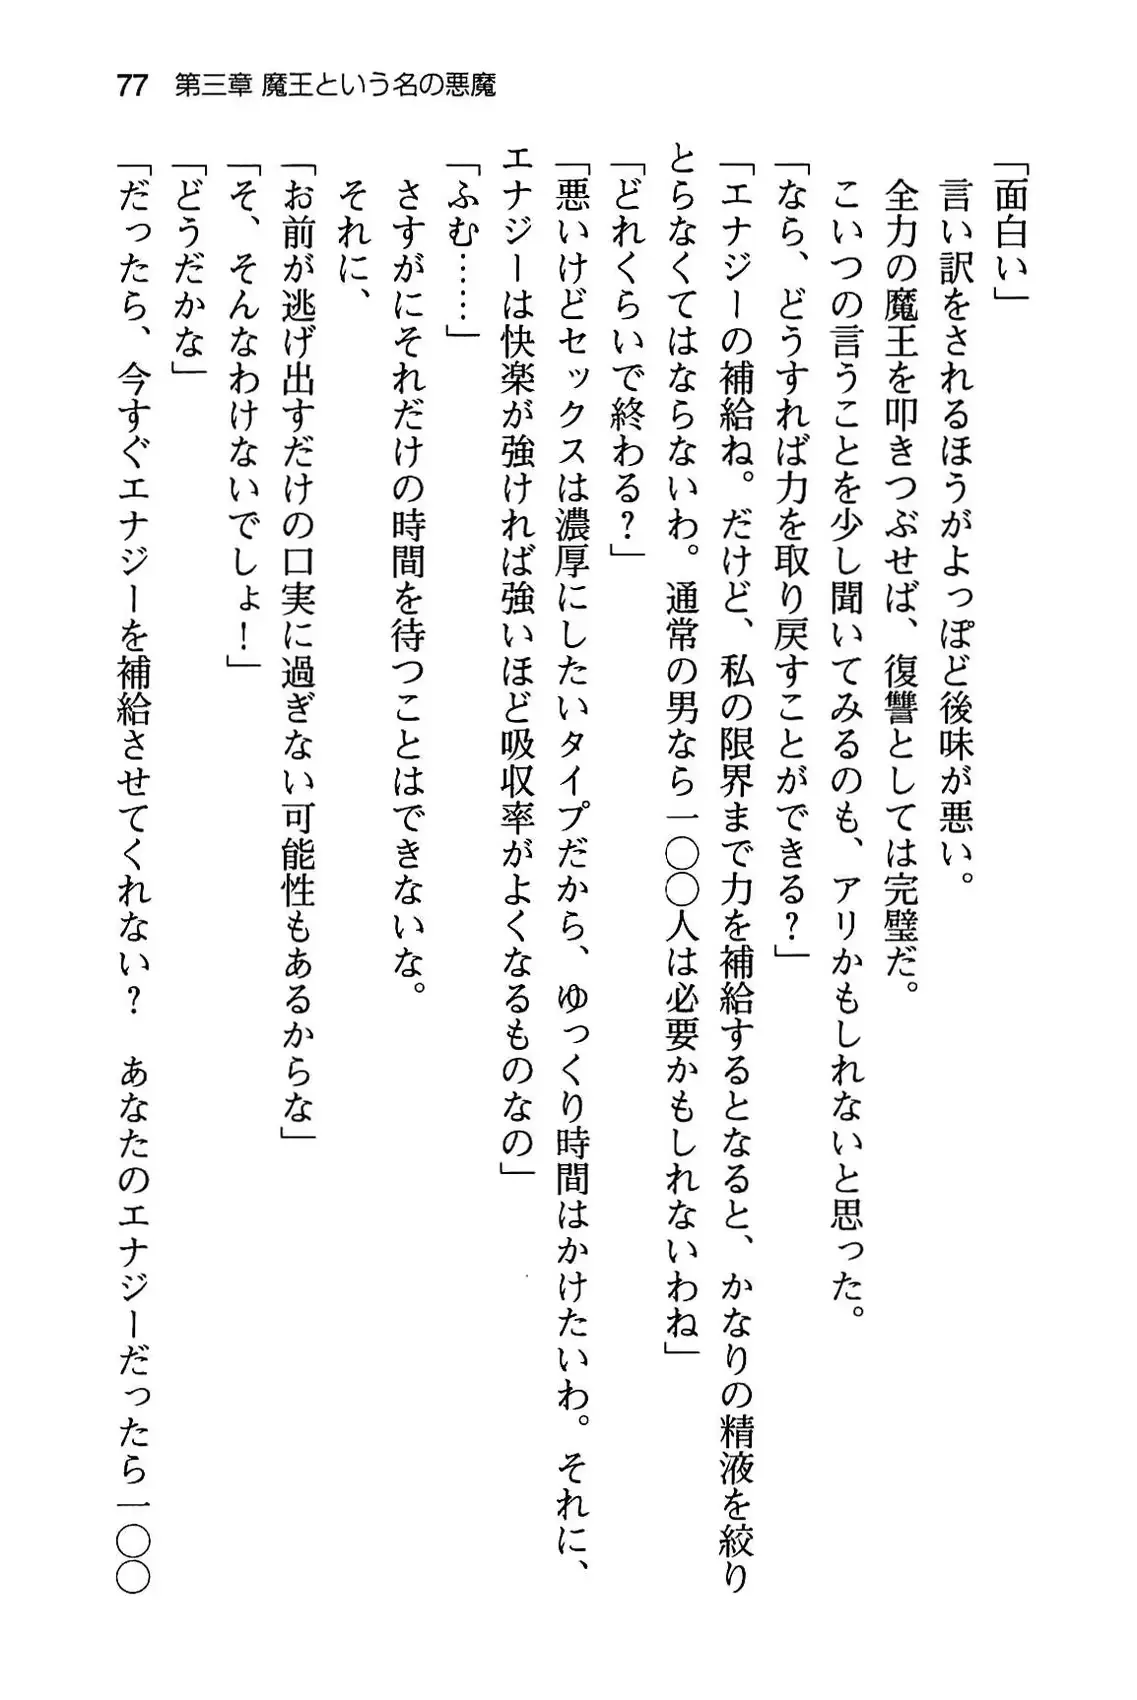 77 第三章 魔王という名の悪魔
「面白い」
言い訳をされるほうがよっぽど後味が悪い。
全力の魔王を叩きつぶせば、復讐としては完璧だ。
こいつの言うことを少し聞いてみるのも、アリかもしれないと思った。
「なら、どうすれば力を取り戻すことができる？」
「エナジーの補給ね。だけど、私の限界まで力を補給するとなると、かなりの精液を絞り
とらなくてはならないわ。通常の男なら一〇〇人は必要かもしれないわね」
「どれくらいで終わる？」
「悪いけどセックスは濃厚にしたいタイプだから、ゆっくり時間はかけたいわ。それに、
エナジーは快楽が強ければ強いほど吸収率がよくなるものなの」
「ふむ……」
さすがにそれだけの時間を待つことはできないな。
それに、
「お前が逃げ出すだけの口実に過ぎない可能性もあるからな」
「そ、そんなわけないでしょ！」
「どうだかな」
「だったら、今すぐエナジーを補給させてくれない？　あなたのエナジーだったら一〇〇